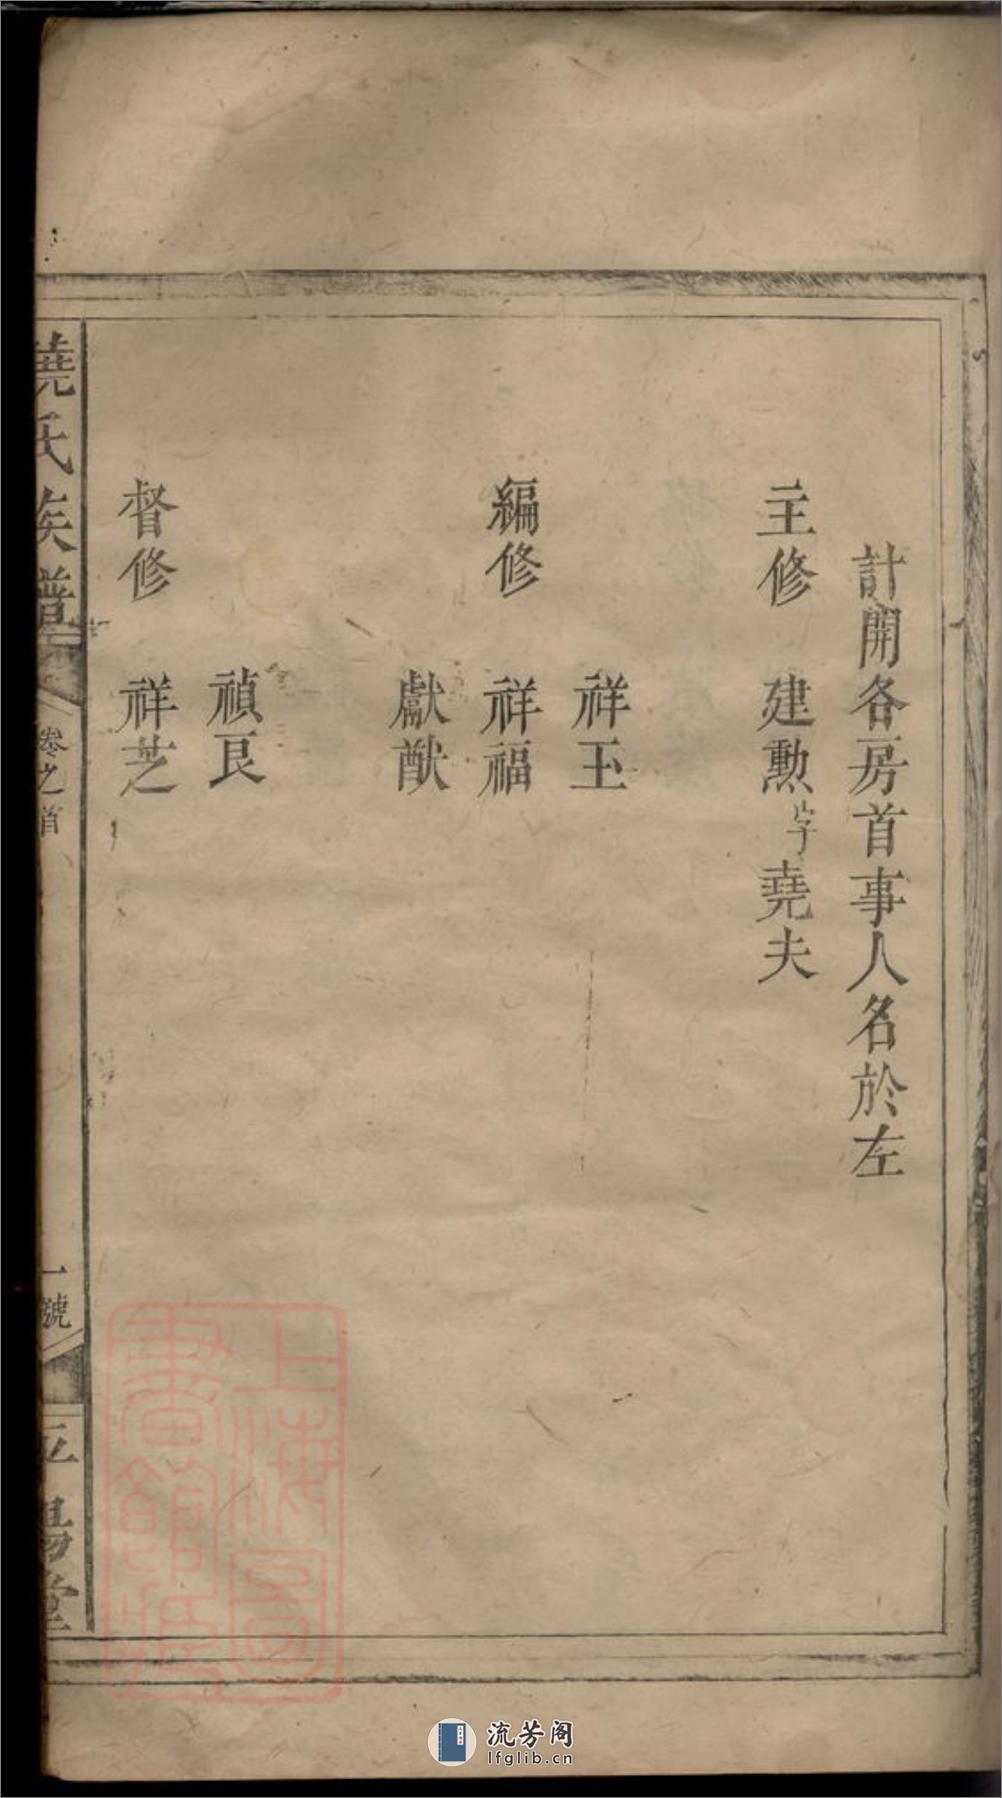 計開各房首事人名於左
主修 建勲字堯夫
祥玉
編修 祥福
獻猷
禎良
督修 祥芝
饒氏族譜 卷之首 一號 平陽堂
上海圖
書館藏
流芳阁
lfglib.cn